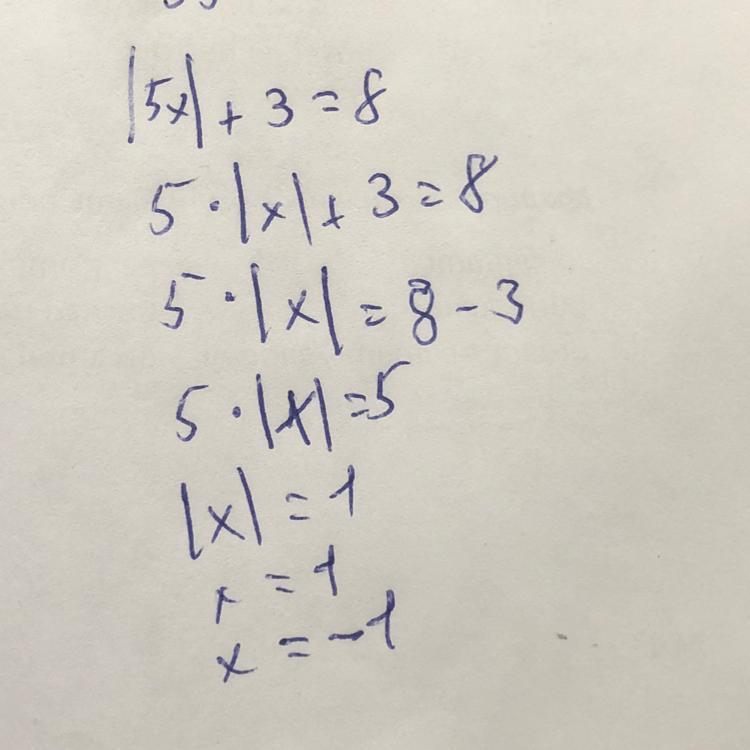 |5x| + 3 = 8
5 · |x| + 3 = 8
5 · |x| = 8 - 3
5 · |x| = 5
|x| = 1
x = 1
x = -1